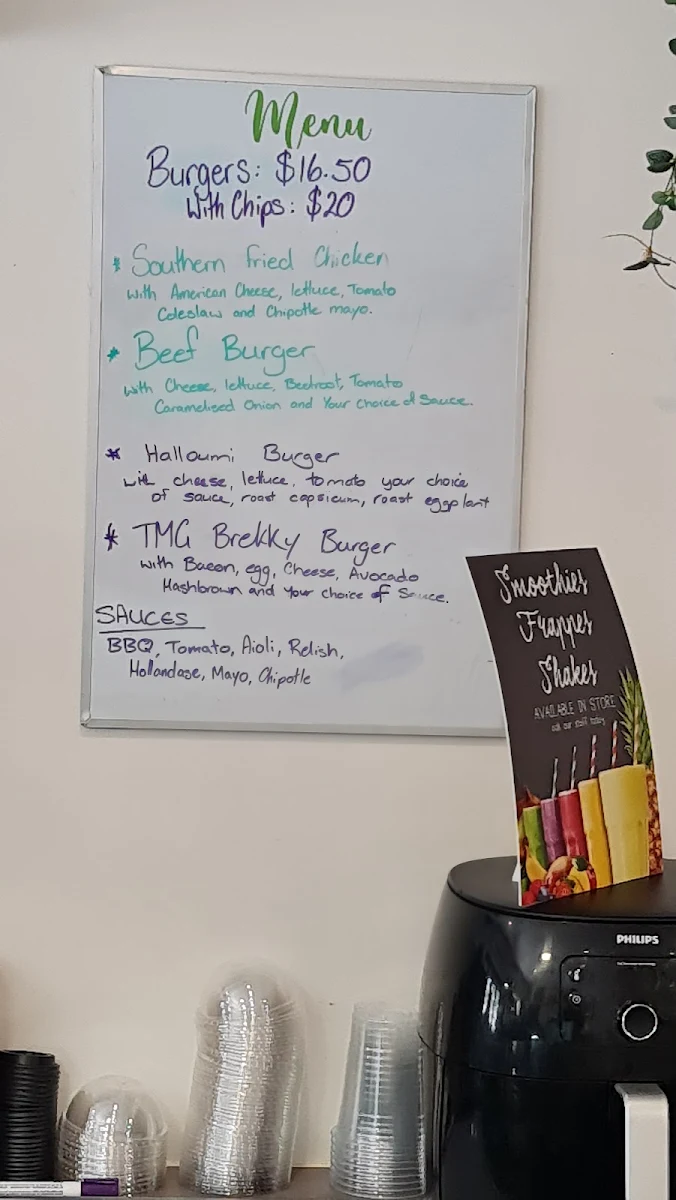 Menu
Burgers: $16.50
With Chips: $20
* Southern Fried Chicken
with American Cheese, lettuce, Tomato
Coleslaw and Chipotle mayo.
* Beef Burger
with Cheese, lettuce, Beetroot, Tomato
Caramelised Onion and Your Choice of Sauce.
* Halloumi Burger
with cheese, lettuce, tomato your choice
of sauce, roast capsicum, roast eggplant
* TMG Brekky Burger
with Bacon, egg, Cheese, Avocado
Hashbrown and Your choice of Sauce.
SAUCES
BBQ, Tomato, Aioli, Relish,
Hollandase, Mayo, Chipotle
Smoothies
Frappes
Shakes
AVAILABLE IN STORE
ask our staff today
PHILIPS